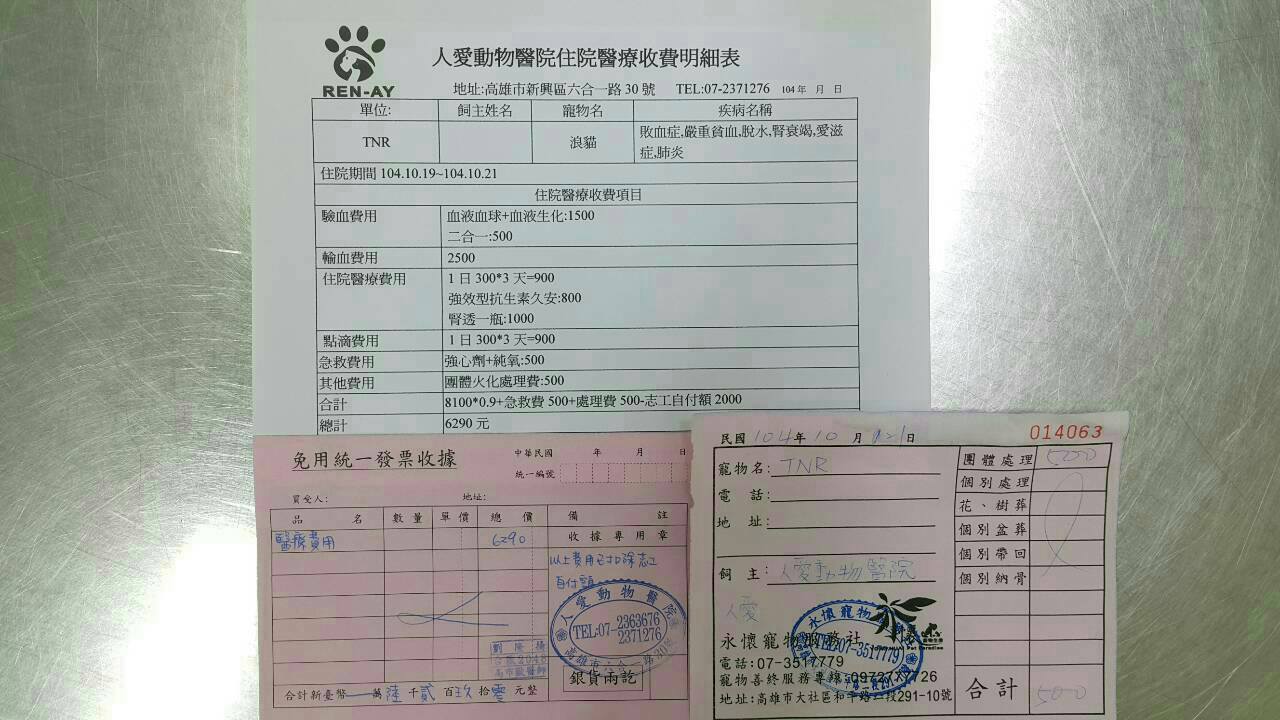 REN-AY
人愛動物醫院住院醫療收費明細表
地址:高雄市新興區六合一路 30 號 TEL:07-2371276 104 年 月 日
單位: 飼主姓名 寵物名 疾病名稱
TNR 浪貓 敗血症,嚴重貧血,脫水,腎衰竭,愛滋
症,肺炎
住院期間 104.10.19~104.10.21
住院醫療收費項目
驗血費用 血液血球+血液生化:1500
二合一:500
輸血費用 2500
住院醫療費用 1 日 300*3 天=900
強效型抗生素久安:800
腎透一瓶:1000
點滴費用 1 日 300*3 天=900
急救費用 強心劑+純氧:500
其他費用 團體火化處理費:500
合計 8100*0.9+急救費 500+處理費 500-志工自付額 2000
總計 6290 元
免用統一發票收據
中華民國 年 月 日
統一編號
買受人: 地址:
品名 數量 單價 總價 備註
醫療費用 6290 收據專用章
以上費用已扣除志工
自付額
人愛動物醫院
TEL:07-2363676
2371276
銀貨兩訖
合計新臺幣 萬 陸 千 貳 百 玖 拾 零 元整
民國 104 年 10 月 21 日
014063
寵物名: TNR
電話:
地址:
飼主: 人愛動物醫院
人愛
團體處理
個別處理
花、樹葬
個別盆葬
個別帶回
個別納骨
合計
永懷寵物服務社
電話:07-3517779
寵物善終服務專線:0972777726
地址:高雄市大社區和平路二段291-10號